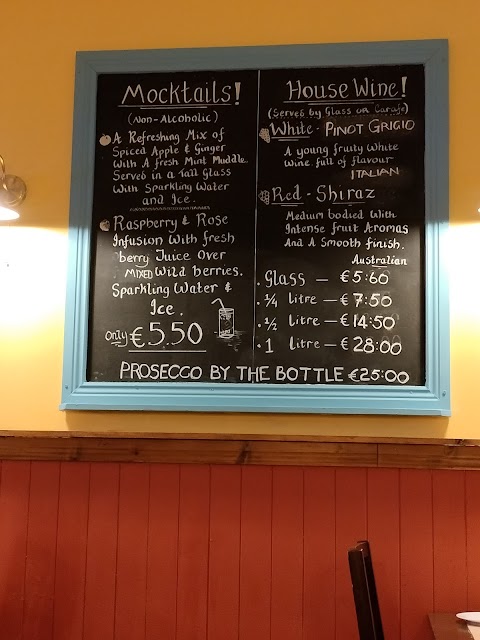 Mocktails!
(Non-Alcoholic)
A Refreshing Mix of
Spiced Apple & Ginger
With A fresh Mint Muddle.
Served in a Tall Glass
With Sparkling Water
and Ice.
Raspberry & Rose
Infusion With fresh
berry Juice Over
MIXED Wild berries.
Sparkling Water &
Ice.
only €5.50
House Wine!
(Served by Glass or Carafe)
White - PINOT GRIGIO
A young fruity white
Wine full of flavour
ITALIAN
Red - Shiraz
Medium bodied With
Intense fruit Aromas
And A Smooth finish.
Australian
. Glass — €5:60
. ¼ litre — €7:50
. ½ litre — €14:50
. 1 litre — €28:00
PROSECCO BY THE BOTTLE €25:00